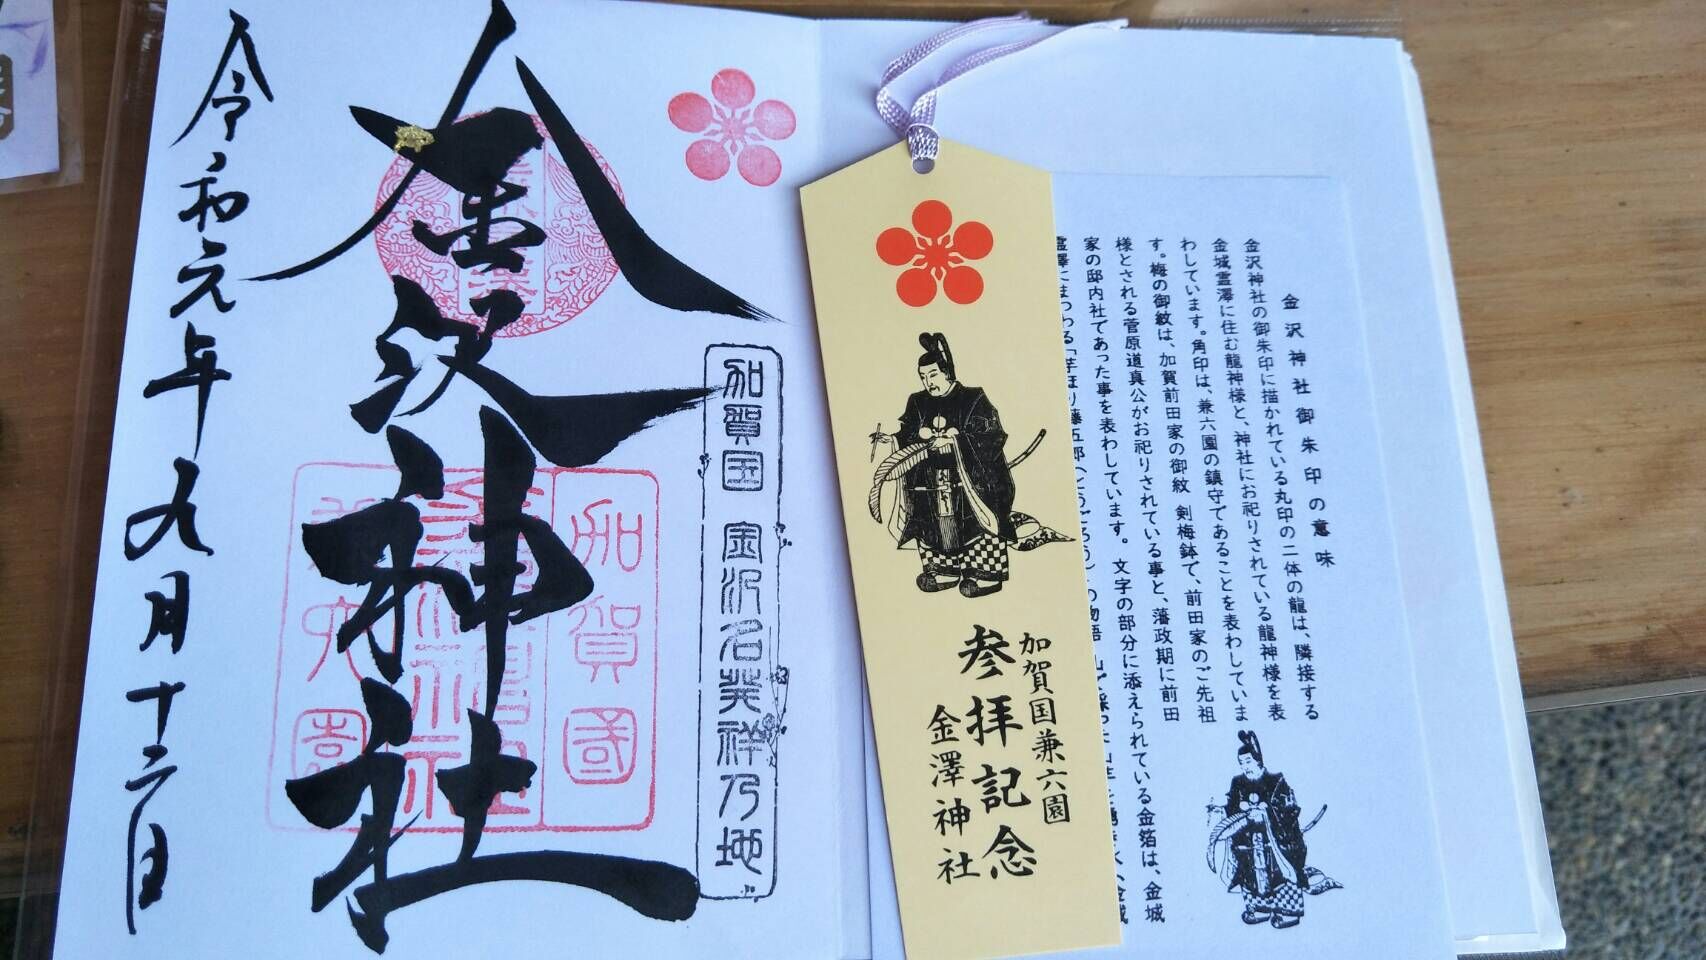 金沢神社御朱印の意味
金沢神社の御朱印に描かれている丸印の二体の龍は、隣接する
金城霊澤に住む龍神様と、神社にお祀りされている龍神様を表
わしています。角印は、兼六園の鎮守であることを表わしていま
す。梅の御紋は、加賀前田家の御紋 剣梅鉢で、前田家のご先祖
様とされる菅原道真公がお祀りされている事と、藩政期に前田
家の邸内社であった事を表わしています。文字の部分に添えられている金箔は、金城
霊澤にまつわる「芋ほり藤五郎(とうごろう)
加賀国兼六園
参拝記念
金澤神社
加賀国 金沢名発祥乃地
加賀國
金沢神社
令和元年九月十六日